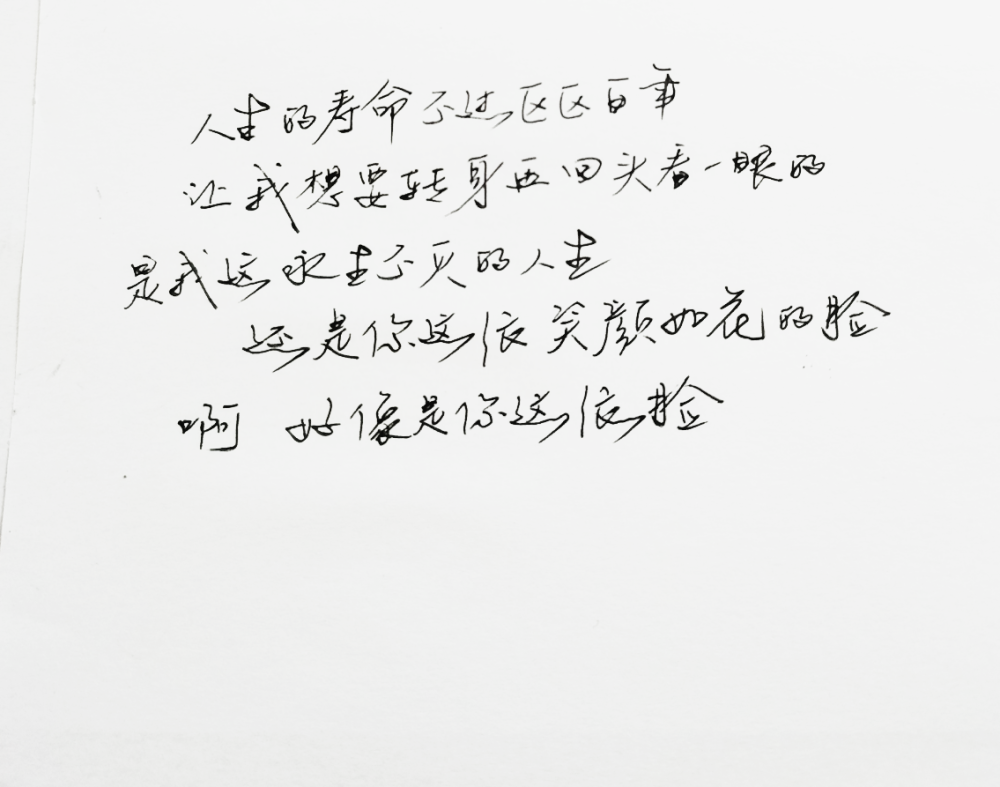 人生的寿命不过区区百年
让我想要转身再回头看一眼的
是我这永生不灭的人生
还是你这张笑颜如花的脸
啊 好像是你这张脸